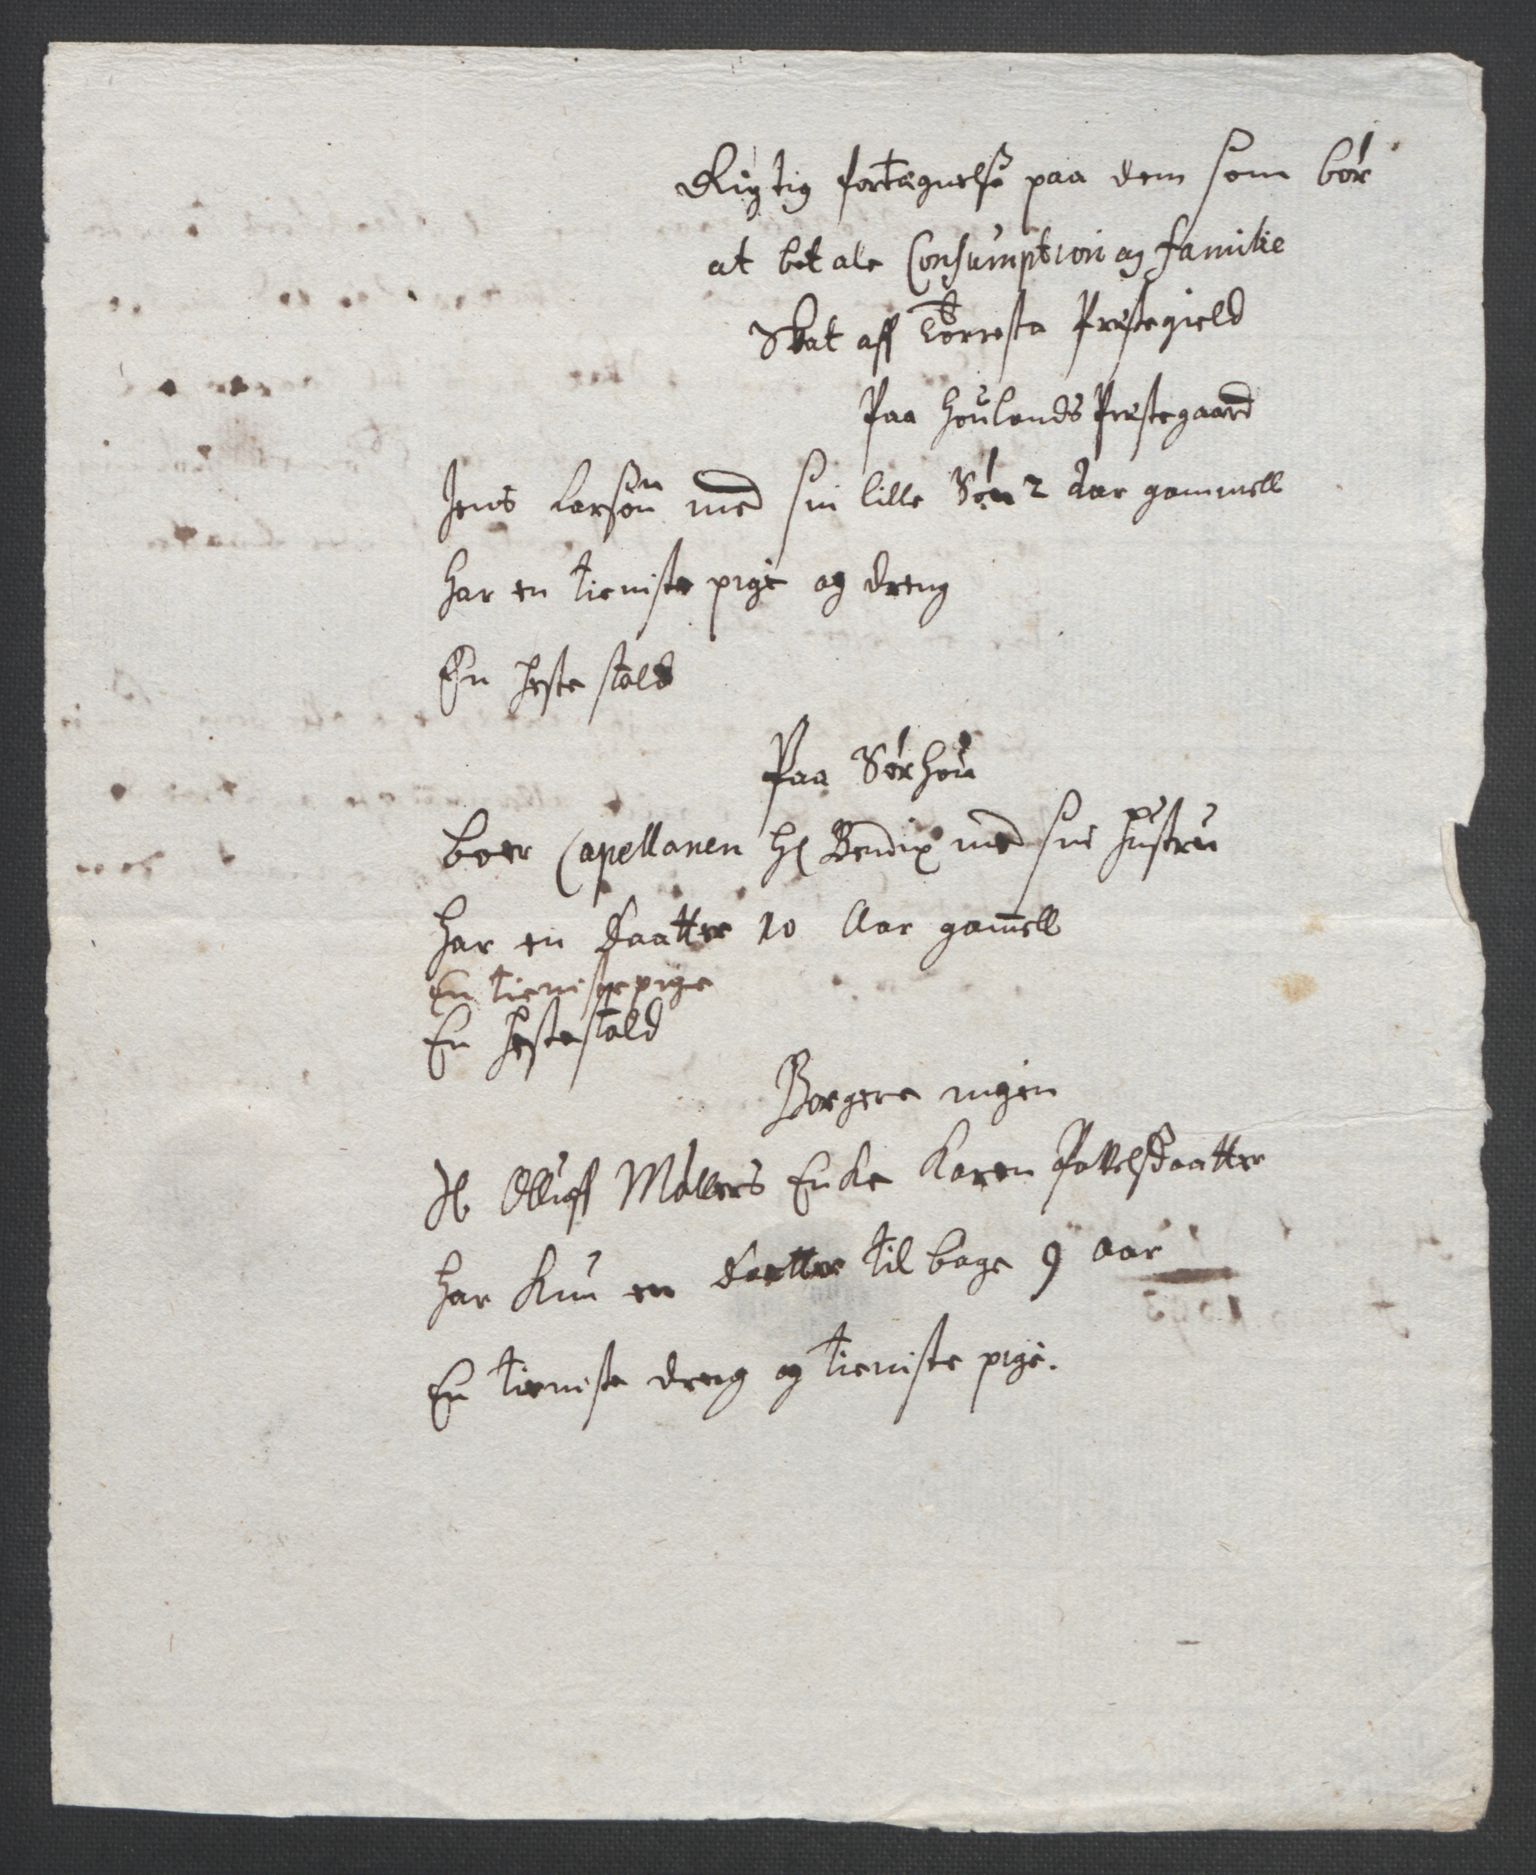 Rigtig fortægnelse paa dem som bør
at betale Consumption og familie
Skat aff Torresta Præstegield
Paa Houlands Præstegaard
Jens Larsøn med sin lille Søn 2 Aar gammell
har en tieniste pige og dreng
En heste stald
Paa Sørhou
boer Capellanen Hr Bendix med sin hustru
har en daatter 10 Aar gamell
En tienistepige
En hestestald
Borgere ingen
Sl. Olluff Møllers Enke Karen Povelsdaatter
har kun en daatter tilbage 9 aar
En tieniste dreng og tieniste pige.